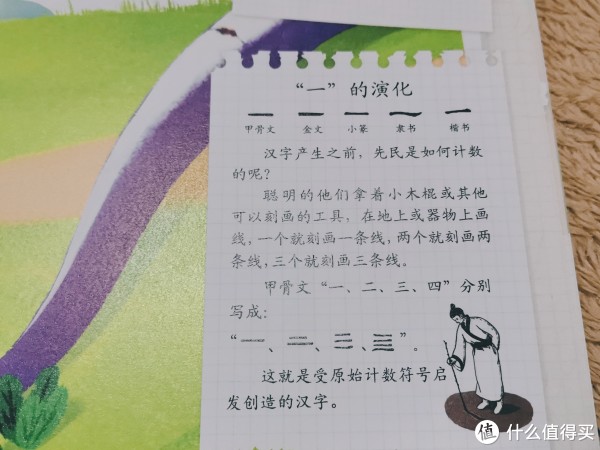 “一”的演化
甲骨文 金文 小篆 隶书 楷书
汉字产生之前，先民是如何计数
的呢？
聪明的他们拿着小木棍或其他
可以刻画的工具，在地上或器物上画
线，一个就刻画一条线，两个就刻画两
条线，三个就刻画三条线。
甲骨文“一、二、三、四”分别
写成：
“一、二、三、亖”。
这就是受原始计数符号启
发创造的汉字。
值 什么值得买